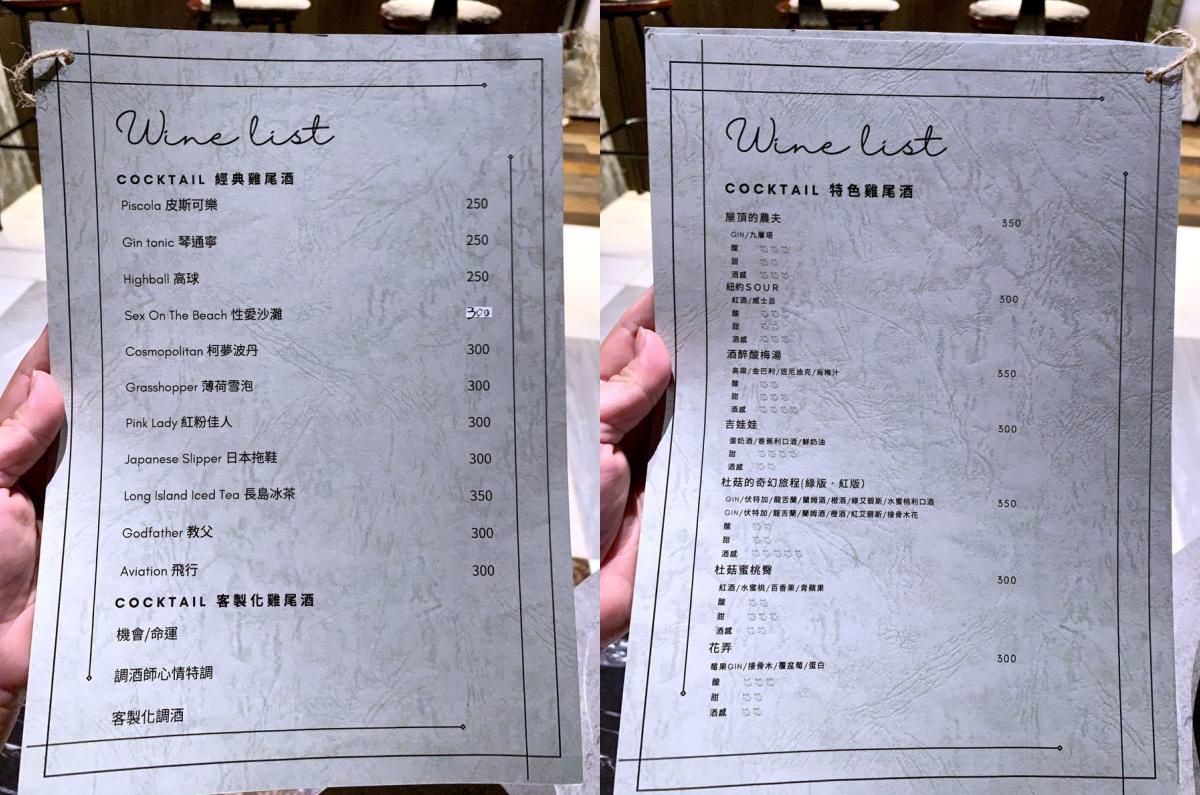 Wine list
COCKTAIL 經典雞尾酒
Piscola 皮斯可樂 250
Gin tonic 琴通寧 250
Highball 高球 250
Sex On The Beach 性愛沙灘 300
Cosmopolitan 柯夢波丹 300
Grasshopper 薄荷雪泡 300
Pink Lady 紅粉佳人 300
Japanese Slipper 日本拖鞋 300
Long Island Iced Tea 長島冰茶 350
Godfather 教父 300
Aviation 飛行 300
COCKTAIL 客製化雞尾酒
機會/命運
調酒師心情特調
客製化調酒
Wine list
COCKTAIL 特色雞尾酒
屋頂的農夫 350
GIN/九層塔
酸
甜
酒感
紐約SOUR 300
紅酒/威士忌
酸
甜
酒感
酒醉酸梅湯 350
高粱/金巴利/班尼迪克/烏梅汁
酸
甜
酒感
吉娃娃 300
蛋奶酒/香蕉利口酒/鮮奶油
甜
酒感
杜菇的奇幻旅程(綠版．紅版) 350
GIN/伏特加/龍舌蘭/蘭姆酒/橙酒/綠艾碧斯/水蜜桃利口酒
GIN/伏特加/龍舌蘭/蘭姆酒/橙酒/紅艾碧斯/接骨木花
酸
甜
酒感
杜菇蜜桃臀 300
紅酒/水蜜桃/百香果/青蘋果
酸
甜
酒感
花弄 300
莓果GIN/接骨木/覆盆莓/蛋白
酸
甜
酒感